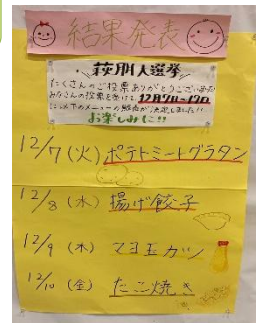 結果発表
萩朋人選挙
たくさんのご投票ありがとうございました
みなさんの投票を受けて、12月7日~10日
に以下のメニューの販売が決定しました!!
お楽しみに!!
12/7(火)ポテトミートグラタン
12/8(水)揚げ餃子
12/9(木)マヨ玉カツ
12/10(金)たこ焼き